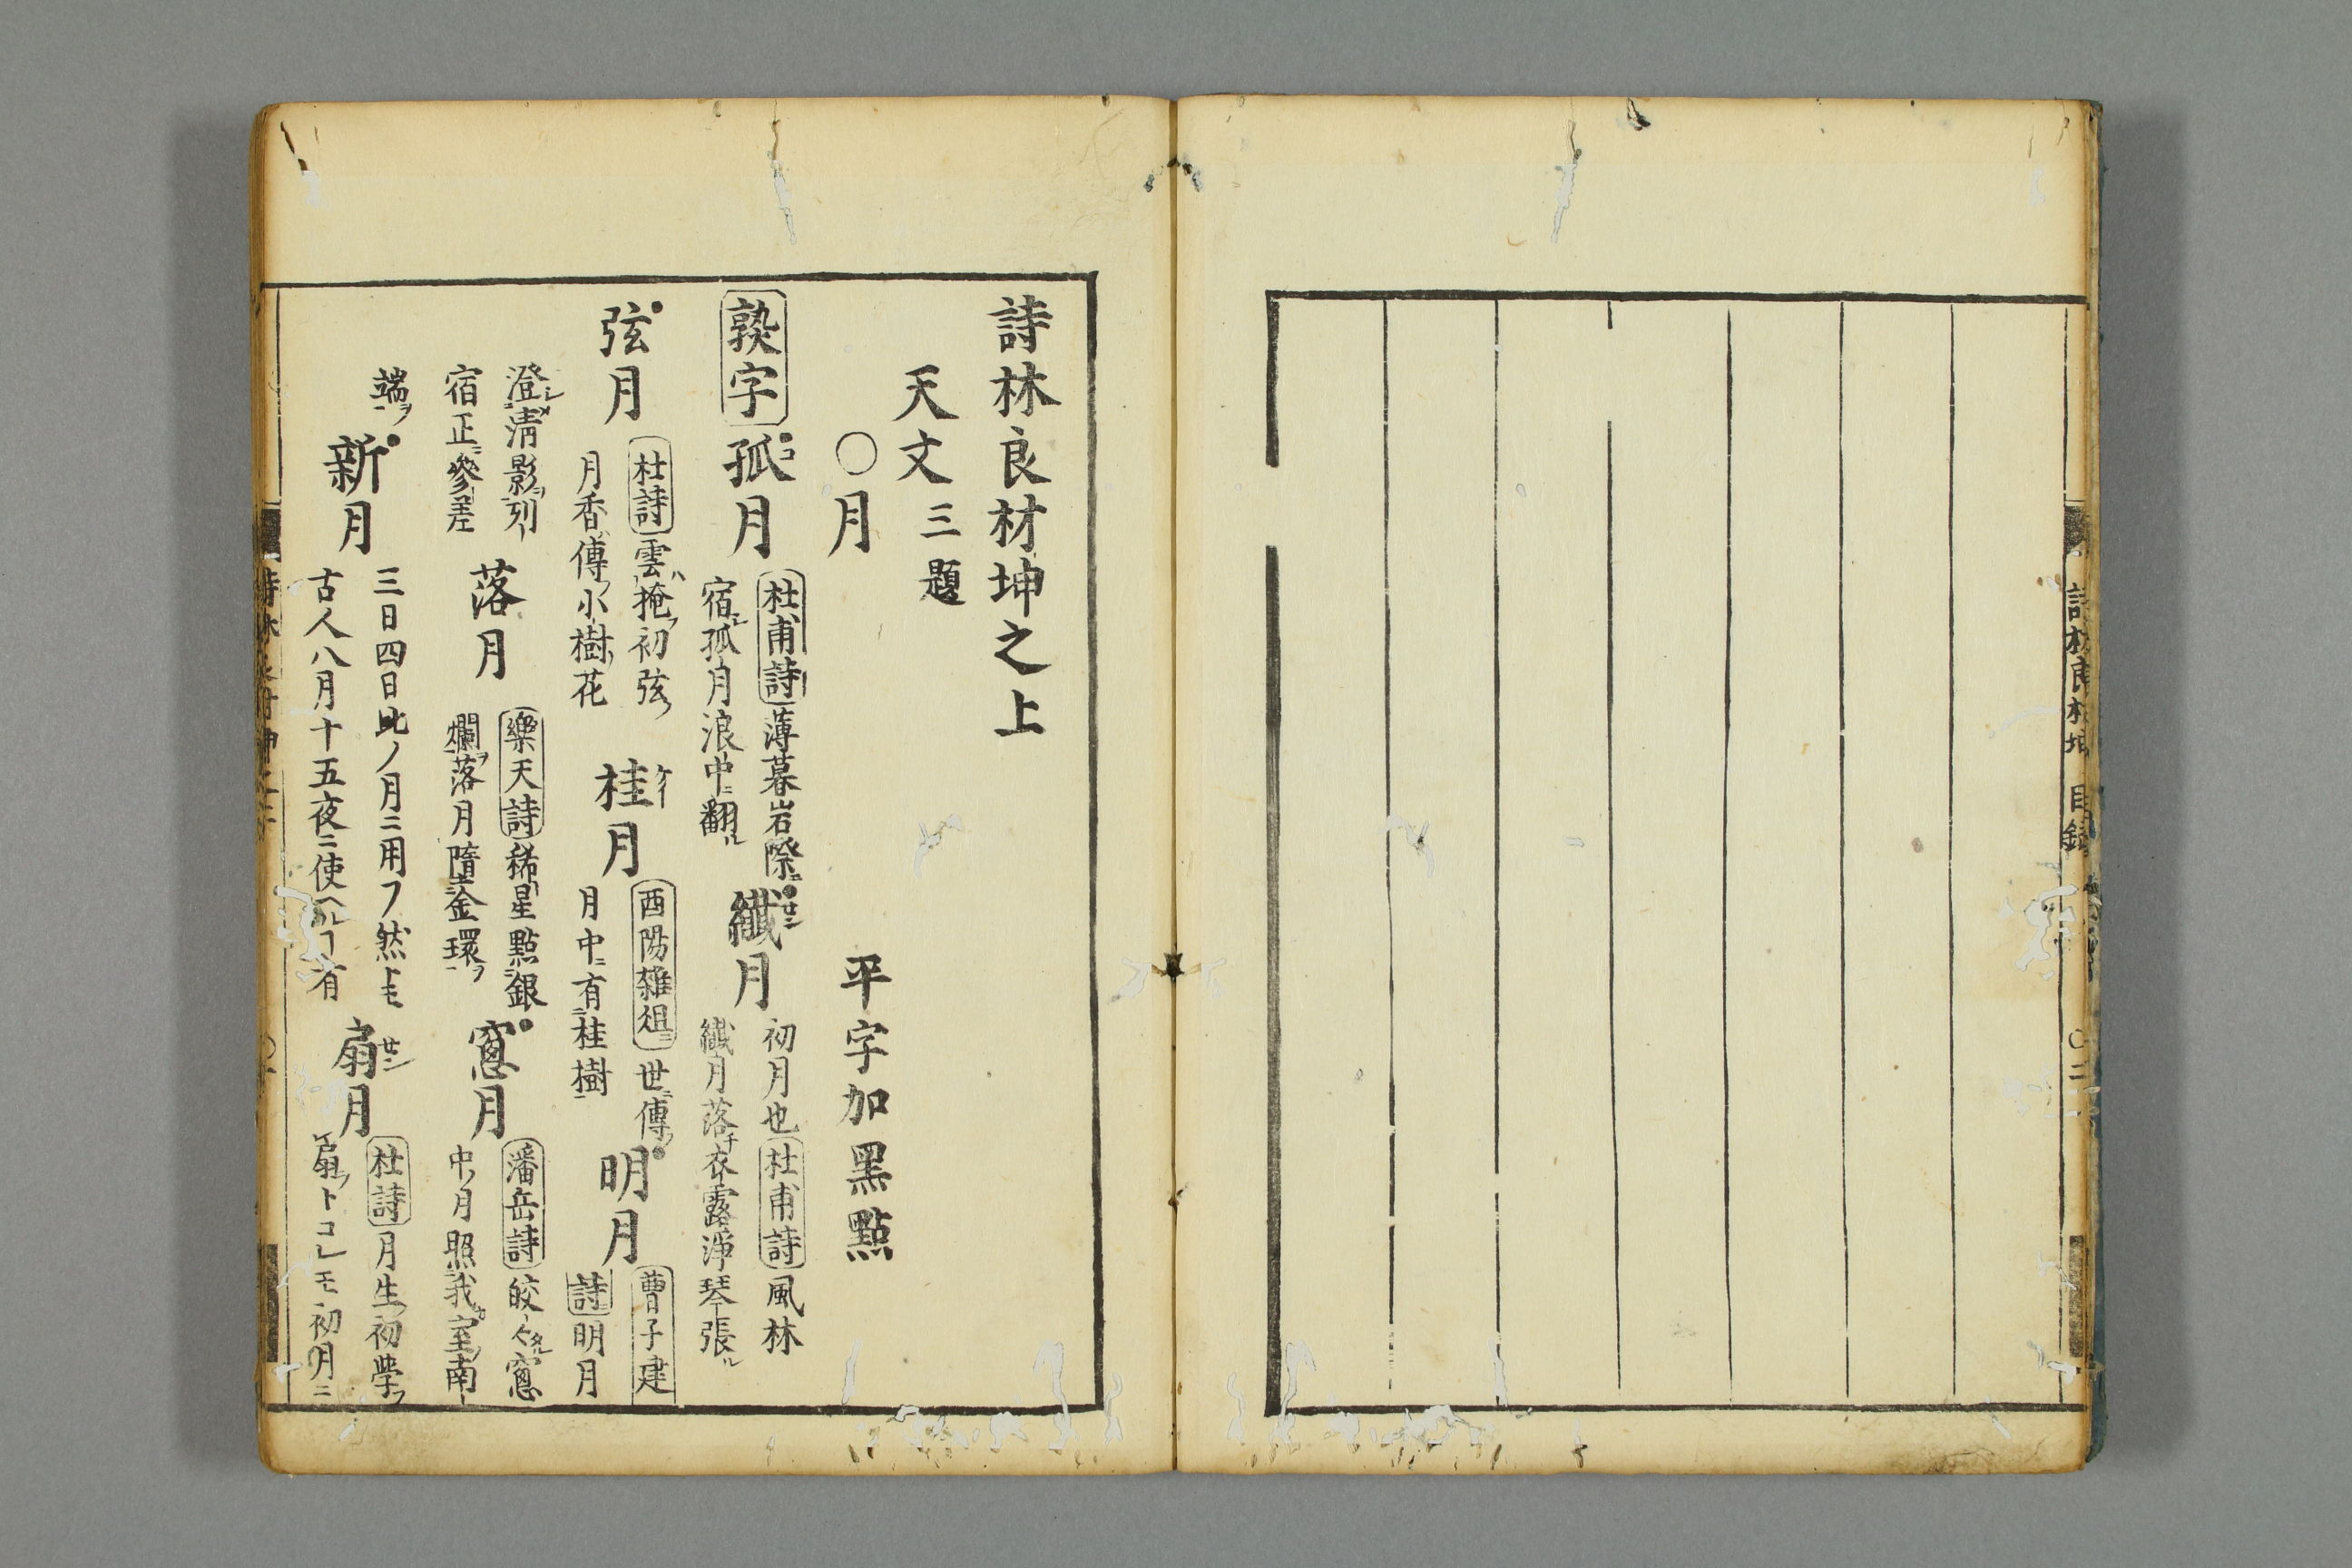 詩林良材坤 目録 〇二
詩林良材坤之上
天文三題
〇月 平字加黑點
孰字 孤月 杜甫詩 薄暮岩際
宿孤月浪中翻
纎月 初月也 杜甫詩 風林
纎月落衣露淨琴張
弦月 杜詩 雲掩初弦
月香傳小樹花
桂月 酉陽雜俎 世傳
月中有桂樹
明月 曹子建
詩 明月
澄清影列
宿正參差
落月 樂天詩 稀星點銀
爛落月墮金環
窻月 潘岳詩 皎々窻
中月照我室南
端
新月 三日四日比ノ月ニ用フ然トモ
古人八月十五夜ニ使ヘルヿ有
扇月 杜詩 月生初學
扇トコレモ初月ニ